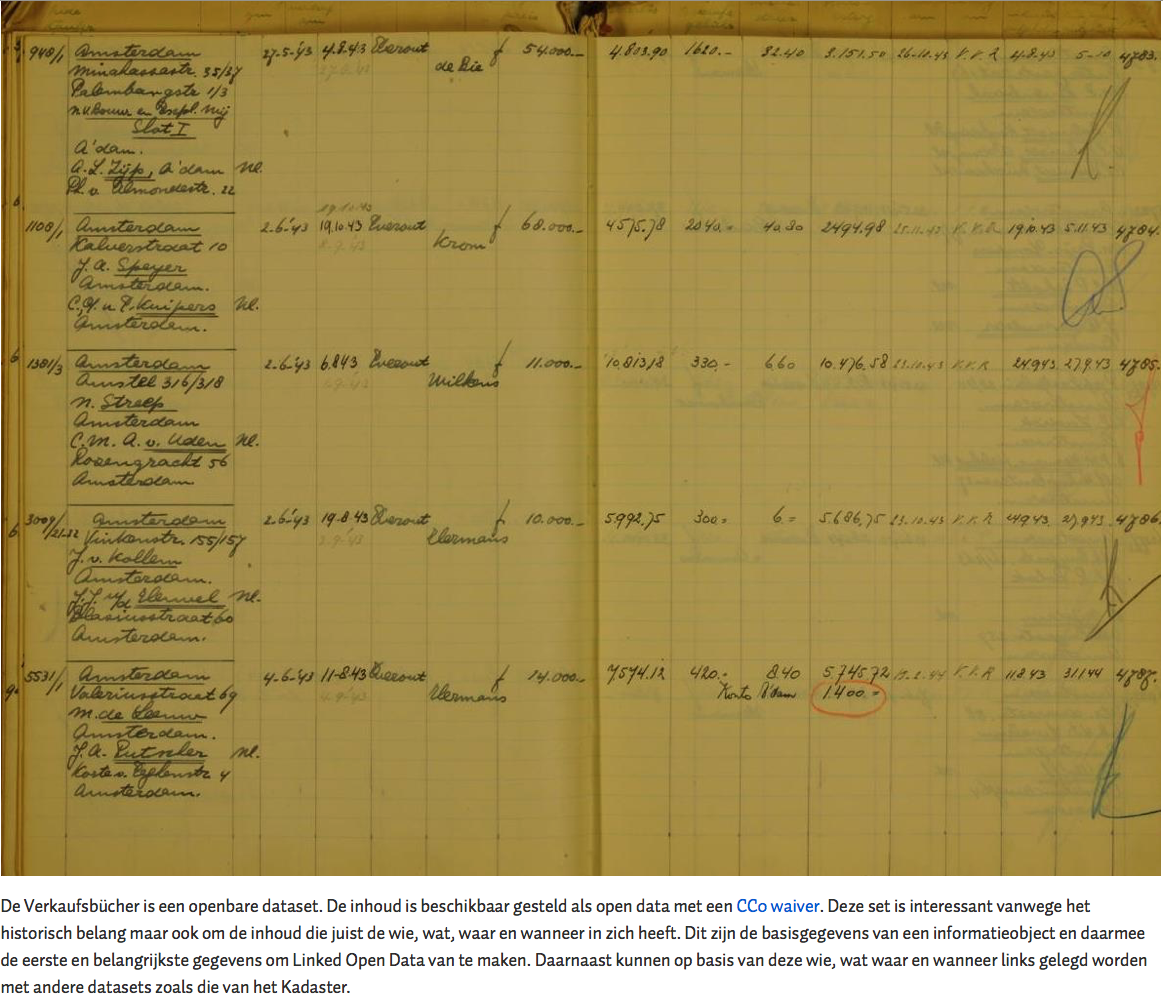 948/1 Amsterdam 27-5-'43 4-8-43 Everout f 54.000.- 4.803.90 1620.- 32.40 3.151.50 26-10-43 V.V.R 4-8-43 5-10 4783.
Minahassastr. 35/37 de Bie
Palembangstr 1/3
n.v. Bouw en Expl. Mij
Slot I
A'dam.
A.L. Zijp, A'dam Nl.
Ph. v. Almondestr. 22
19.10.43
1108/1 Amsterdam 2-6-'43 19.10.43 Everout f 68.000.- 4575.78 2040.- 40.80 2494.98 25.11.43 V.V.R 19.10.43 5.11.43 4784.
Kalverstraat 10 Krom
J.A. Speyer
Amsterdam.
Kuipers Nl.
Amsterdam.
1381/3 Amsterdam 2-6-'43 6.8.43 Everout f 11.000.- 10.813,18 330.- 6.60 10.476.58 23.10.43 V.V.R 24.9.43 27.9.43 4785.
Amstel 316/318 Wilkens
N. Streep
Amsterdam
C.M.A. v. Uden Nl.
Rozengracht 56
Amsterdam
3009/21-22 Amsterdam 2-6-'43 19-8-43 Everout f 10.000.- 5.992,75 300.= 6.= 5.686,75 23.10.43 V.V.R 27.9.43 4786.
Vinkenstr. 155/157 Hermans
J. v. Kollem
Amsterdam.
Nl.
Blasiusstraat 60
Amsterdam.
5531/1 Amsterdam 4-6-'43 11-8-43 Everout f 14.000.- 7574.12 420.- 8.40 5.745.72 V.V.R 11.8.43 31.1.44 4787.
Valeriusstraat 69 Hermans Konto A'dam 1.400.=
M. de Leeuw
Amsterdam.
J.A. Putscher Nl.
Amsterdam.
De Verkaufsbücher is een openbare dataset. De inhoud is beschikbaar gesteld als open data met een CC0 waiver. Deze set is interessant vanwege het
historisch belang maar ook om de inhoud die juist de wie, wat, waar en wanneer in zich heeft. Dit zijn de basisgegevens van een informatieobject en daarmee
de eerste en belangrijkste gegevens om Linked Open Data van te maken. Daarnaast kunnen op basis van deze wie, wat waar en wanneer links gelegd worden
met andere datasets zoals die van het Kadaster.